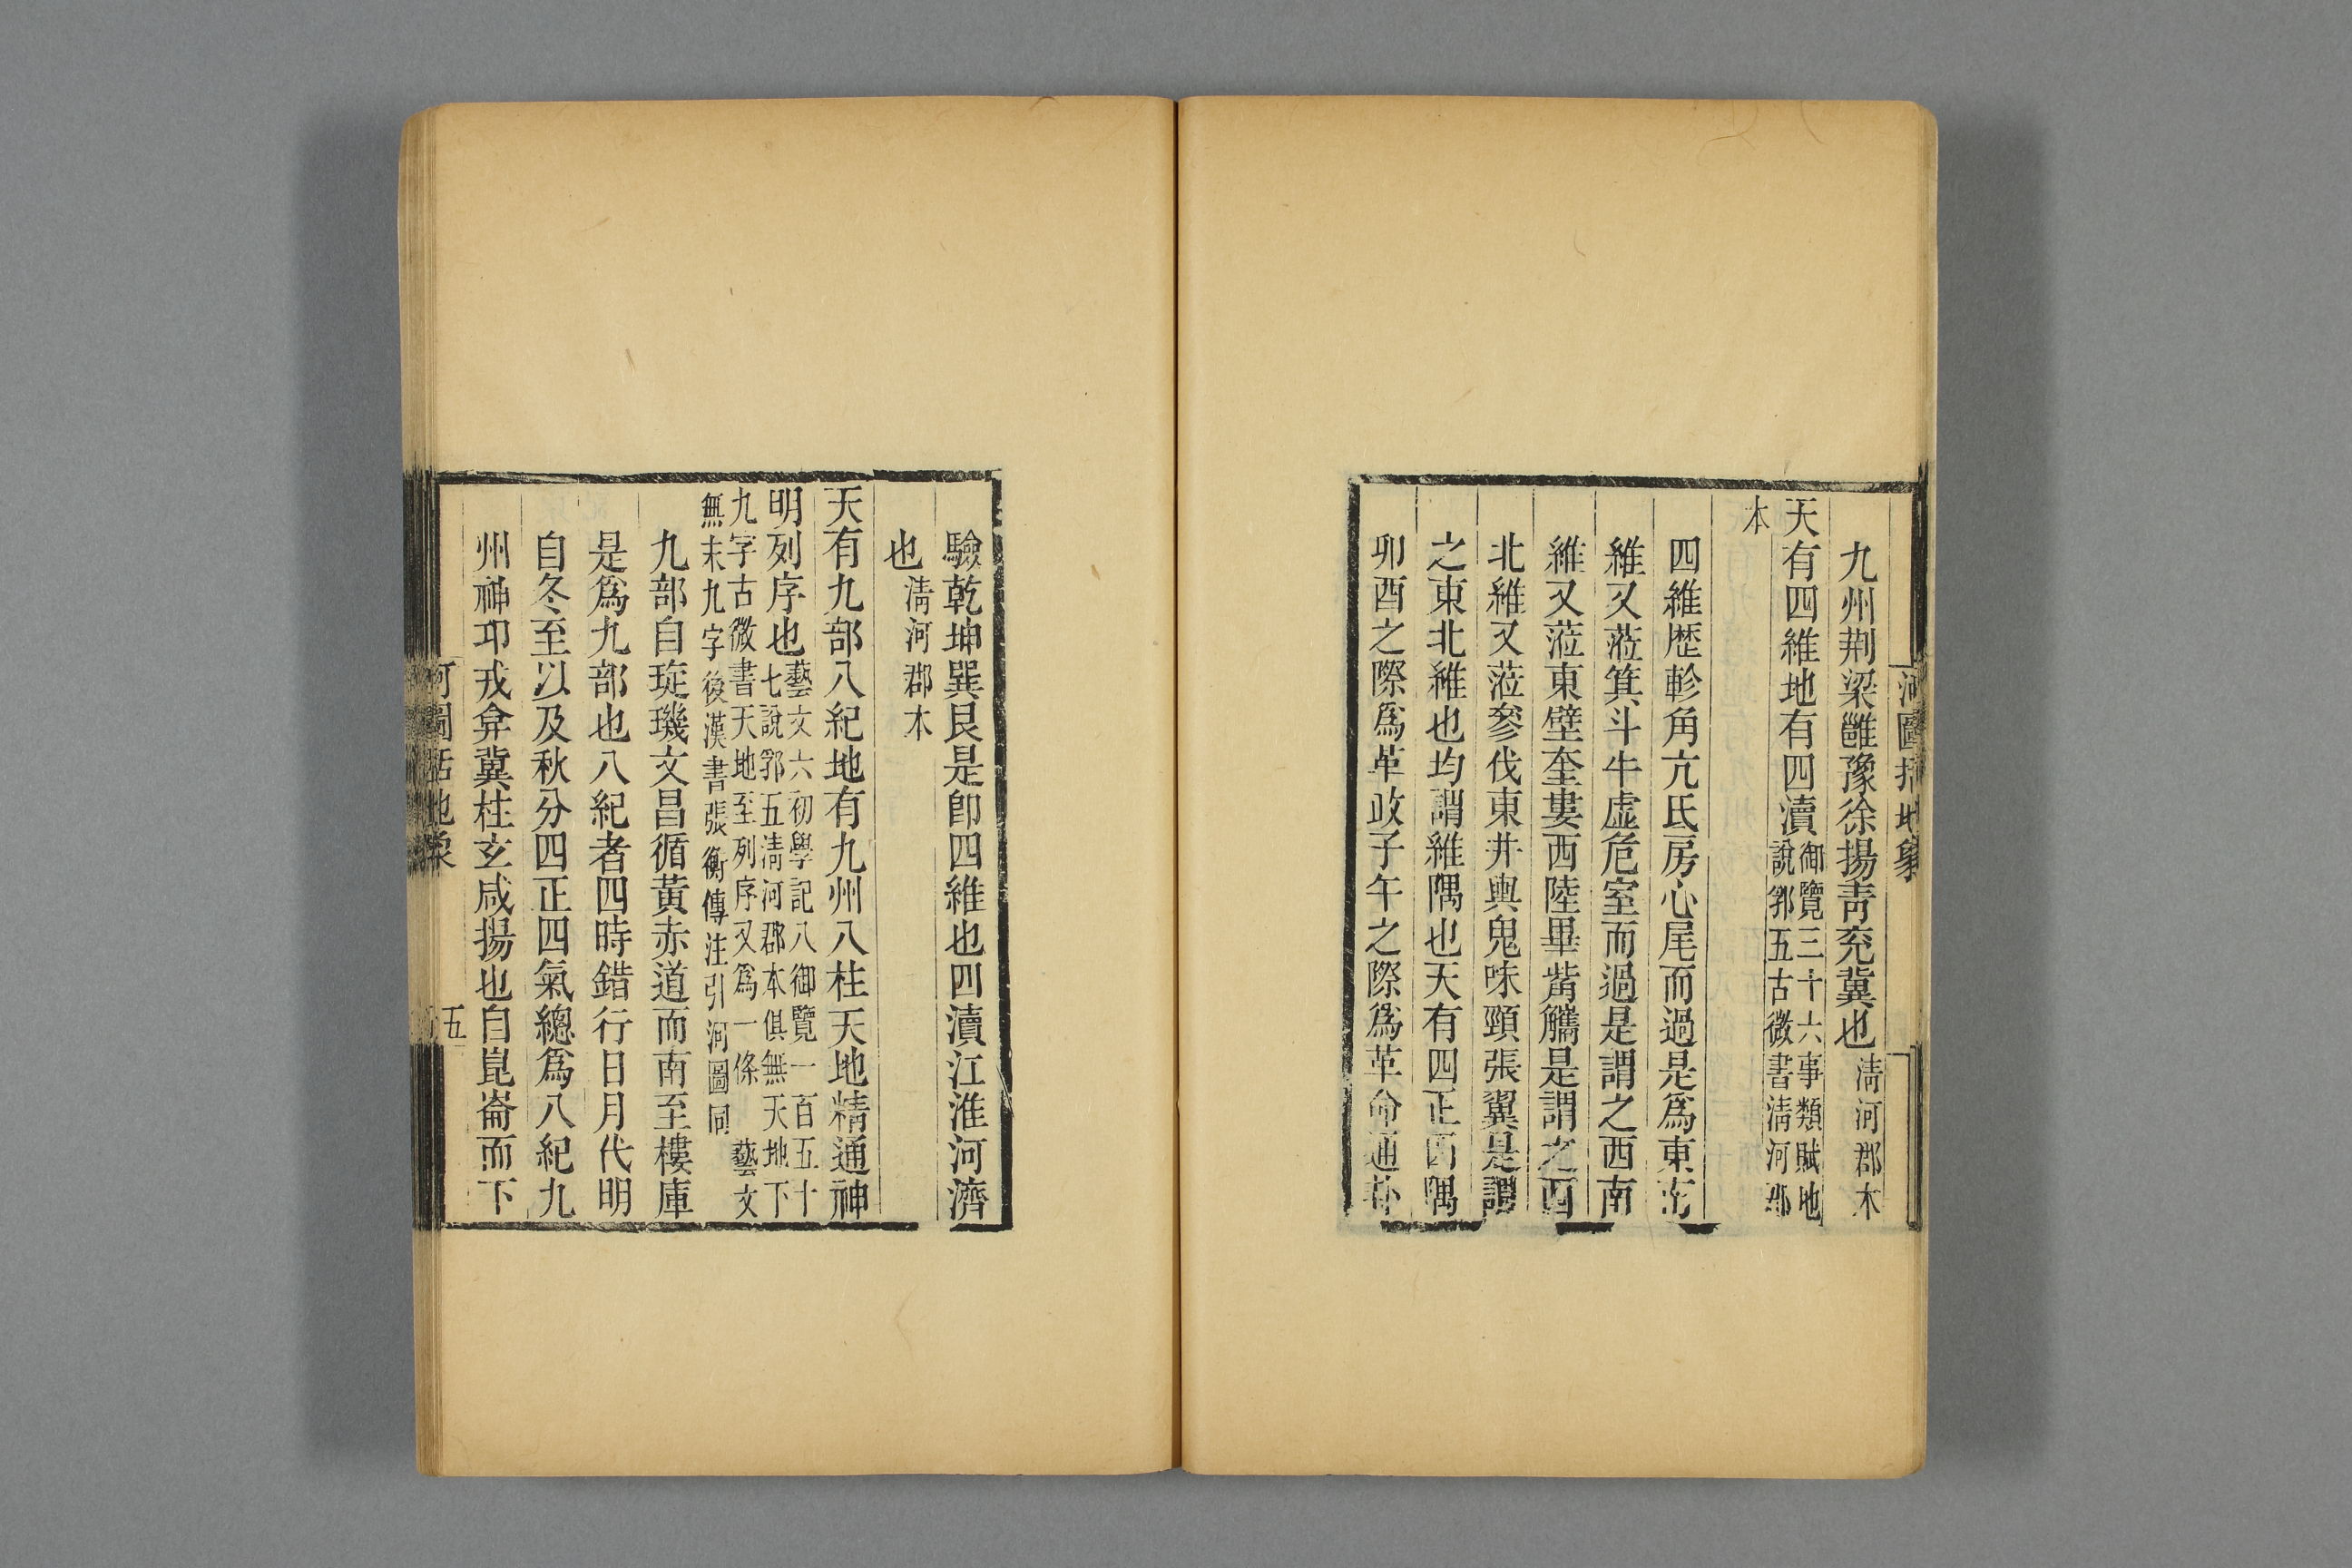 河圖括地象
九州荆梁雝豫徐揚靑兖冀也淸河郡本
天有四維地有四瀆御覽三十六事類賦地
說郛五古微書淸河郡
本
四維歴軫角亢氐房心尾而過是爲東南
維又蒞箕斗牛虛危室而過是謂之西南
維又蒞東壁奎婁西陸畢觜觿是謂之西
北維又蒞參伐東井輿鬼味頸張翼是謂
之東北維也均謂維隅也天有四正四隅
卯酉之際爲革政子午之際爲革命通卦
驗乾坤巽艮是卽四維也四瀆江淮河濟
也淸河郡本
天有九部八紀地有九州八柱天地精通神
明列序也藝文六初學記八御覽一百五十
七說郛五淸河郡本俱無天地下
九字古微書天地至列序又爲一條藝文
無末九字後漢書張衡傳注引河圖同
九部自琁璣文昌循黃赤道而南至樓庫
是爲九部也八紀者四時錯行日月代明
自冬至以及秋分四正四氣總爲八紀九
州神卭戎弇冀柱玄咸揚也自崑崙而下
河圖括地象
五